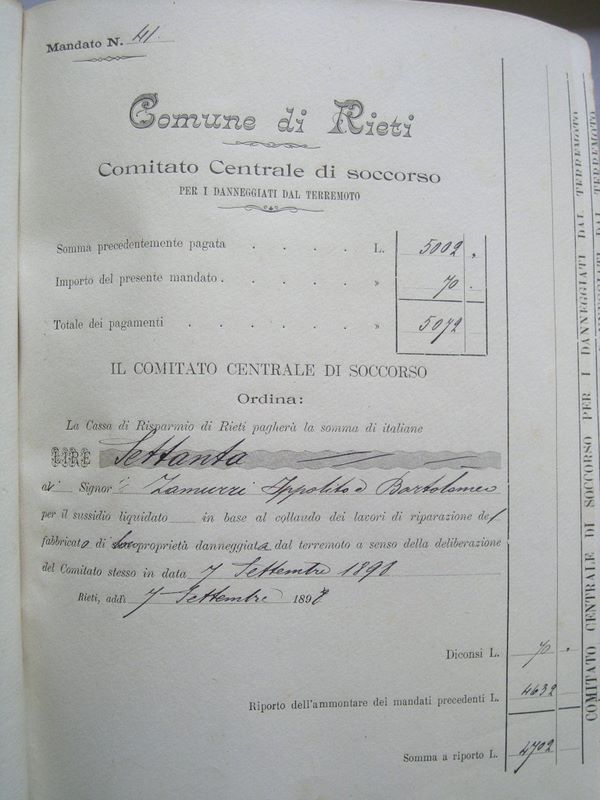 Mandato N. 41
Comune di Rieti
Comitato Centrale di soccorso
PER I DANNEGGIATI DAL TERREMOTO
Somma precedentemente pagata . . . . L. 5002 „
Importo del presente mandato . . . . » 70 .
Totale dei pagamenti . . . . . » 5072
IL COMITATO CENTRALE DI SOCCORSO
Ordina:
La Cassa di Risparmio di Rieti pagherà la somma di italiane
LIRE Settanta
ai Signori Zamurri Ippolito e Bartolomeo
per il sussidio liquidato in base al collaudo dei lavori di riparazione del
fabbricato di loro proprietà danneggiato dal terremoto a senso della deliberazione
del Comitato stesso in data 7 Settembre 1898
Rieti, addì 7 Settembre 1898
Diconsi L. 70 .
Riporto dell'ammontare dei mandati precedenti L. 4632
Somma a riporto L. 4702
COMITATO CENTRALE DI SOCCORSO PER I DANNEGGIATI DAL TERREMOTO